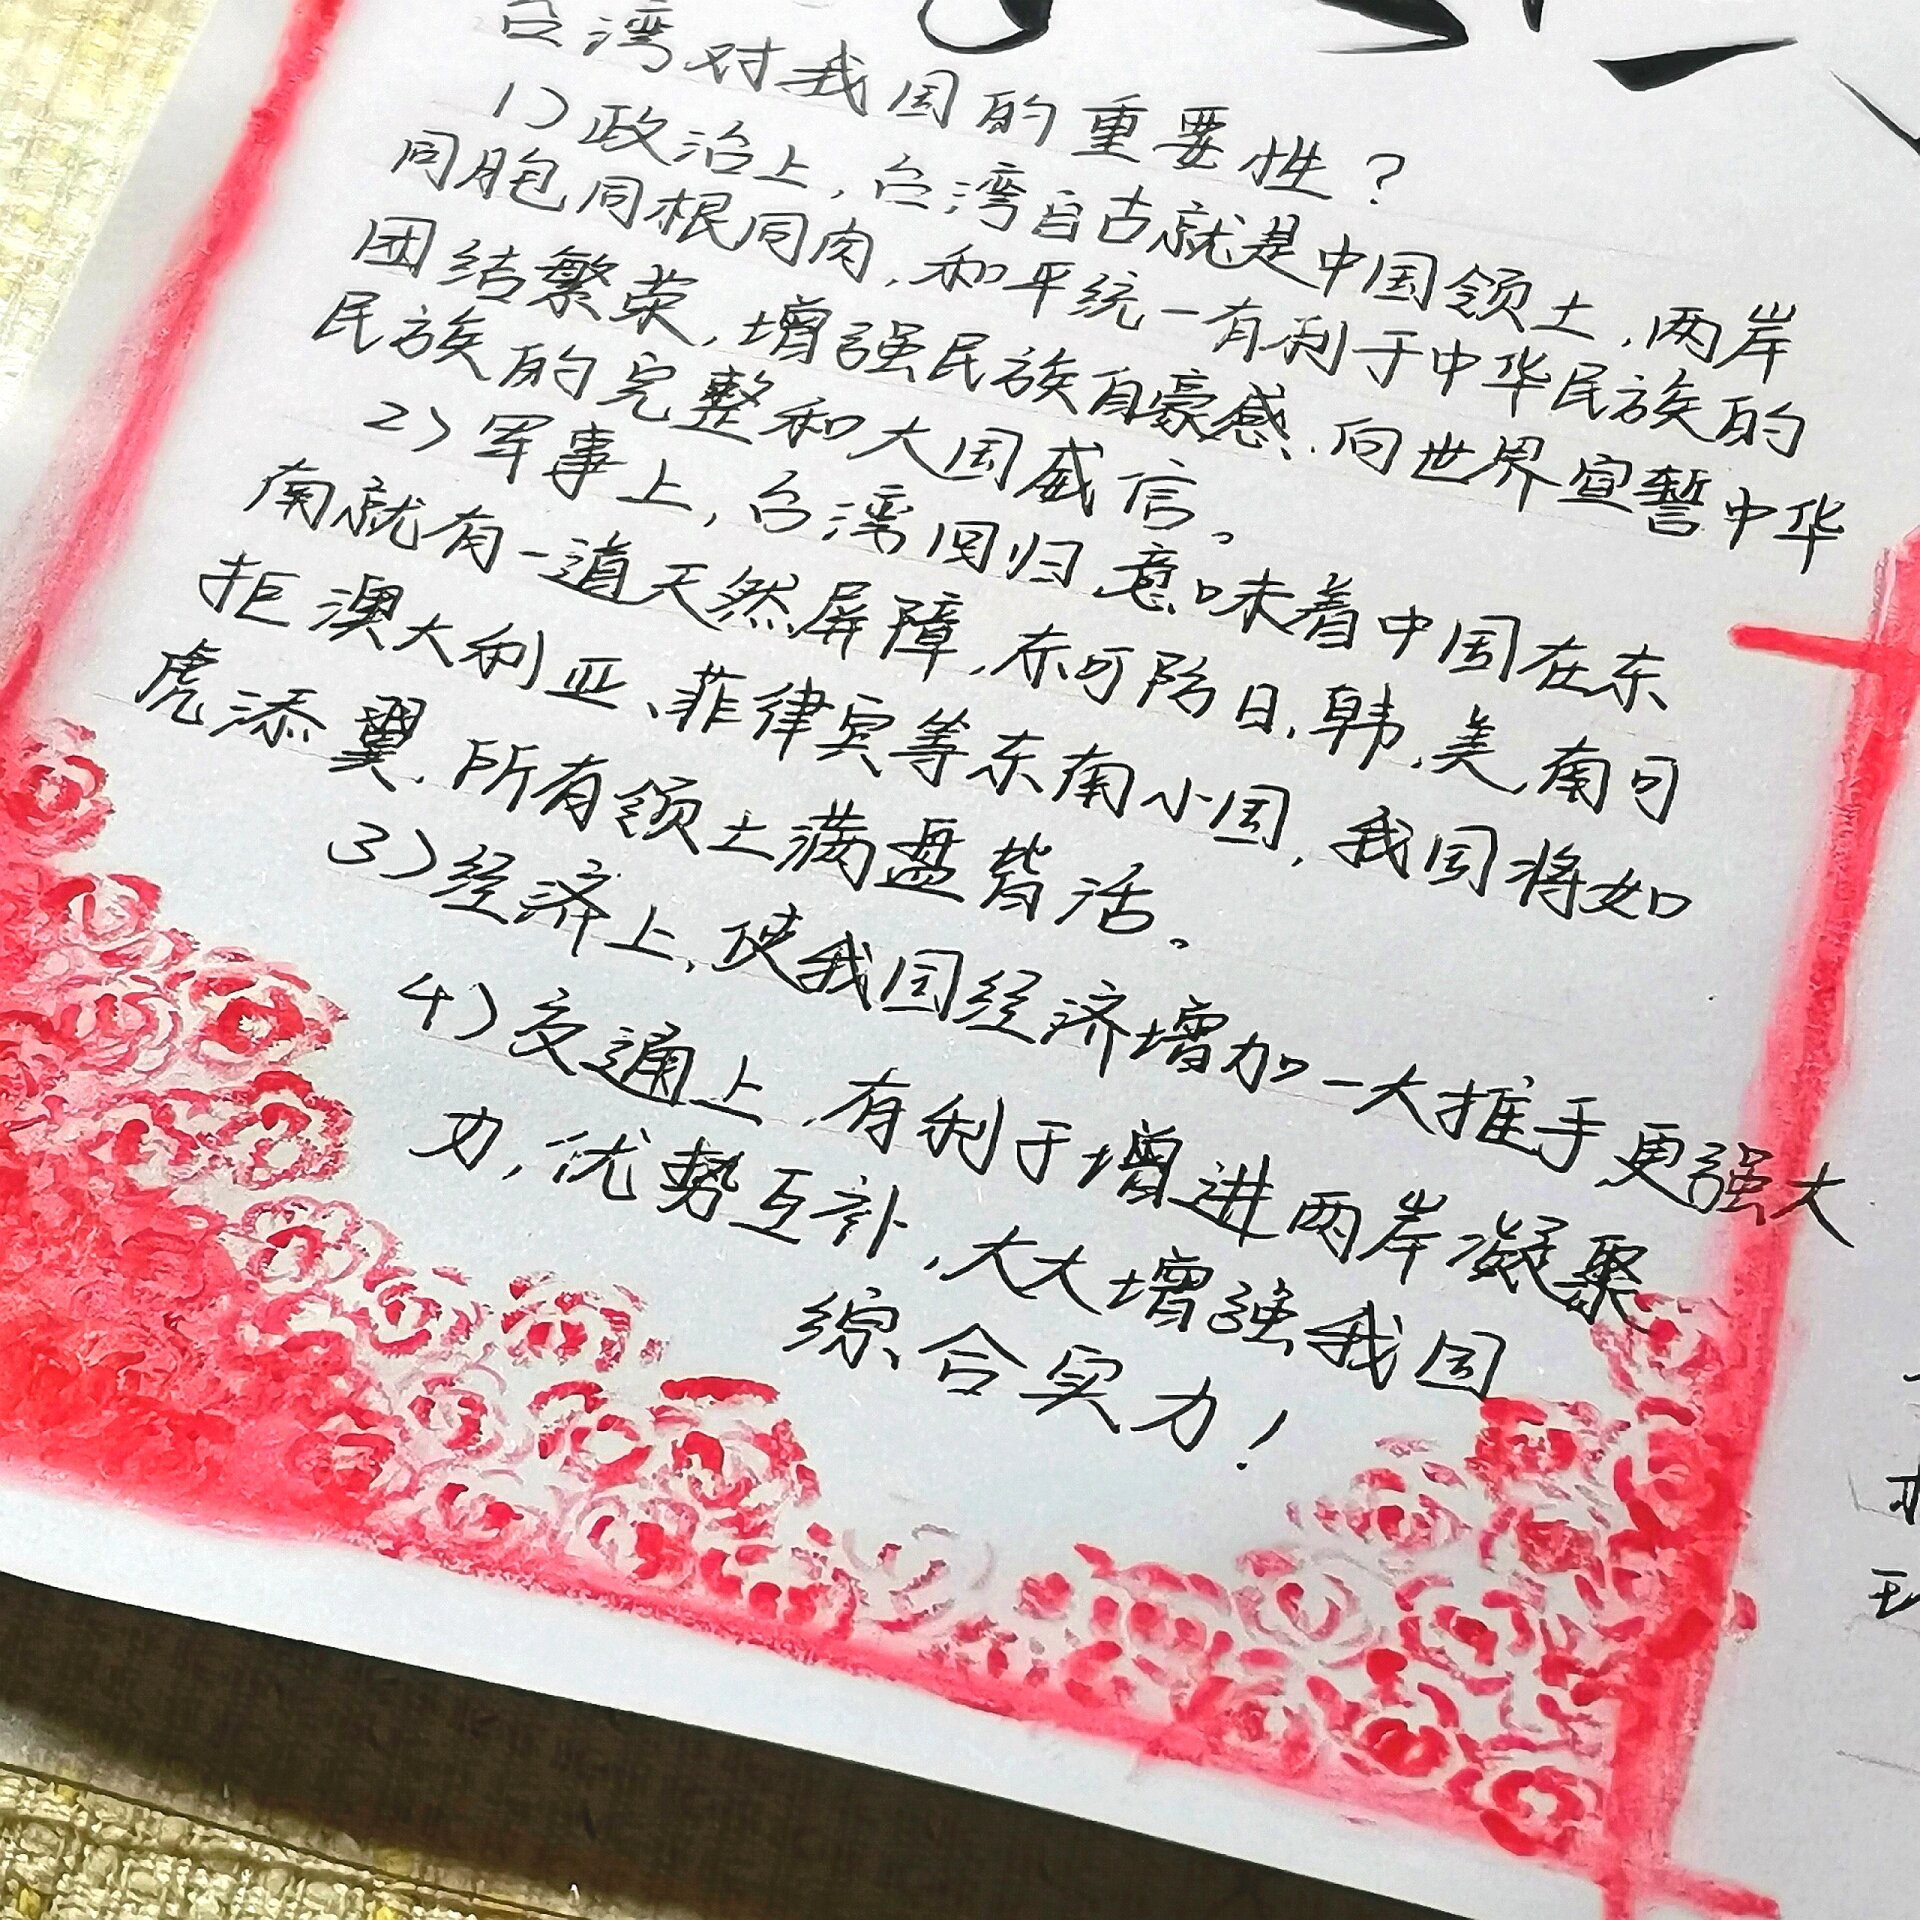 台湾对我国的重要性？
1）政治上，台湾自古就是中国领土，两岸
同胞同根同肉，和平统一有利于中华民族的
团结繁荣，增强民族自豪感，向世界宣誓中华
民族的完整和大国威信。
2）军事上，台湾回归，意味着中国在东
南就有一道天然屏障，东可防日、韩、美，南可
拒澳大利亚、菲律宾等东南小国，我国将如
虎添翼，所有领土满盘皆活。
3）经济上，使我国经济增加一大推手更强大
4）交通上，有利于增进两岸凝聚
力，优势互补，大大增强我国
综合实力！